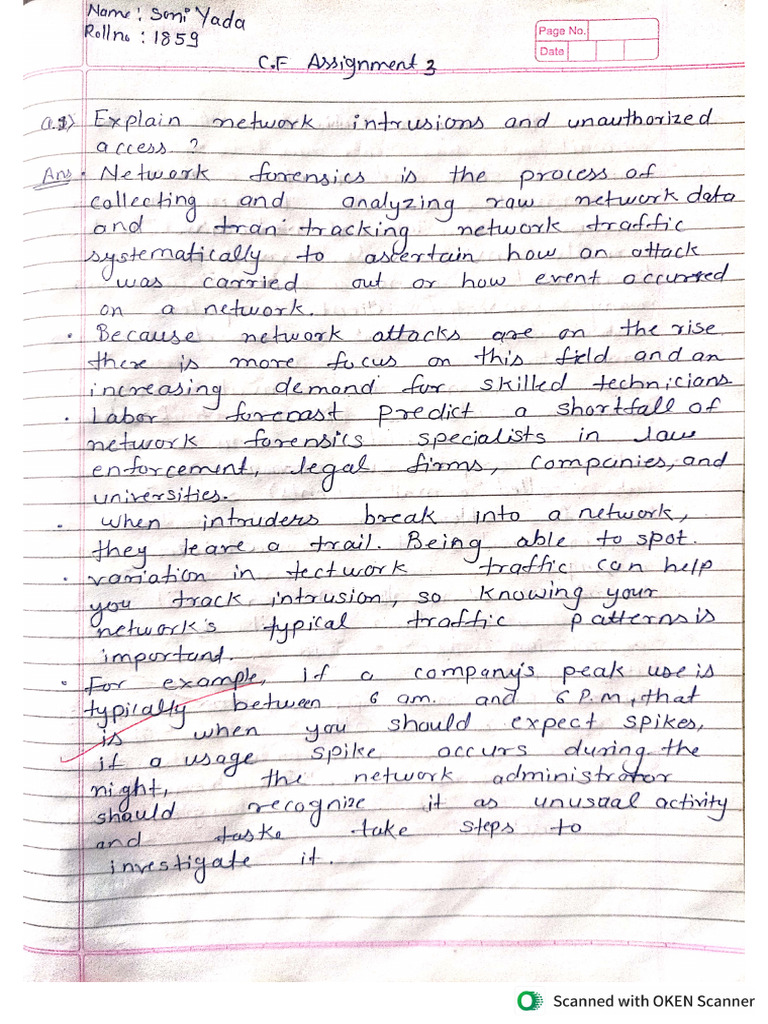 Name: Soni Yada
Roll no : 1859
Page No.
Date
C.F Assignment 3
Q.1) Explain network intrusions and unauthorized
access ?
Ans • Network forensics is the process of
collecting and analyzing raw network data
and tran tracking network traffic
systematically to ascertain how an attack
was carried out or how event occurred
on a network.
• Because network attacks are on the rise
there is more focus on this field and an
increasing demand for skilled technicians.
• Labor forecast predict a shortfall of
network forensics specialists in law
enforcement, legal firms, companies, and
universities.
• when intruders break into a network,
they leave a trail. Being able to spot.
• variation in tectwork traffic can help
you track intrusion, so knowing your
network's typical traffic patterns is
important.
• For example, if a company's peak use is
typically between 6 am. and 6 P.m, that
is when you should expect spikes,
if a usage spike occurs during the
night, the network administrator
should recognize it as unusual activity
and taske take steps to
investigate it.
Scanned with OKEN Scanner